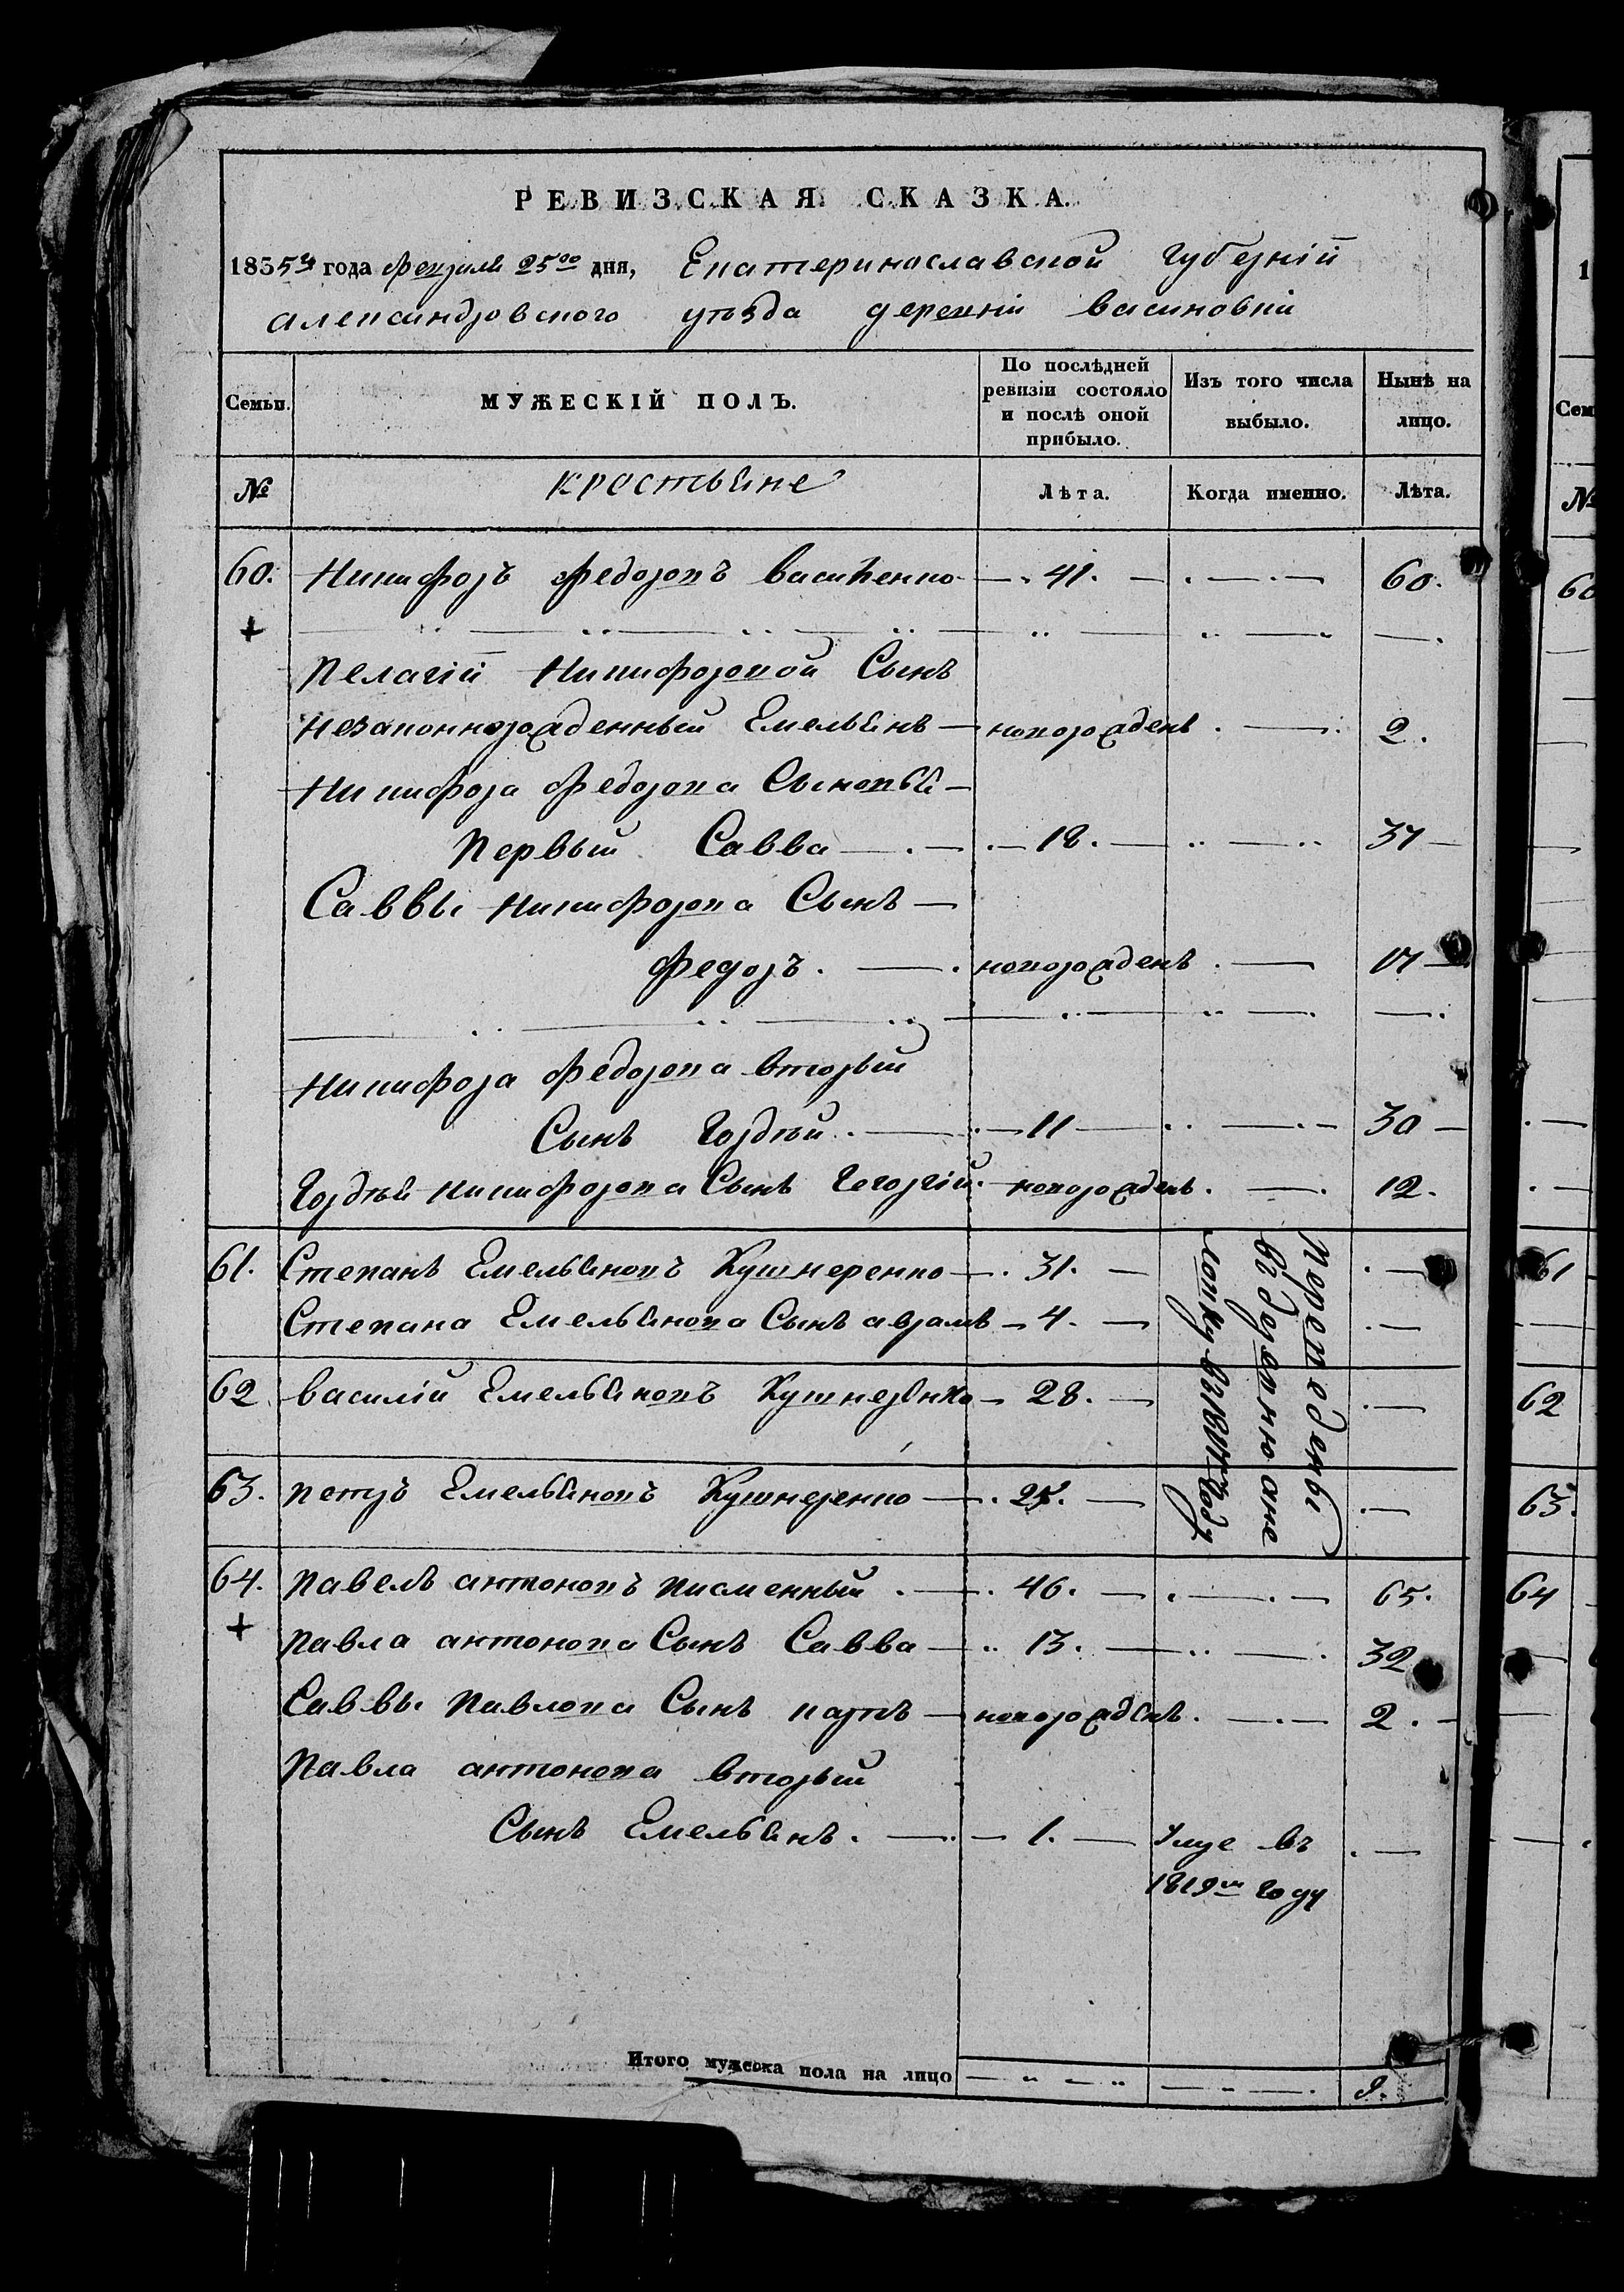 РЕВИЗСКАЯ СКАЗКА.
1835 года февраля 25го дня, Екатеринославской Губерніи
александровского уѣзда деревни васиновки
Семьи. МУЖЕСКІЙ ПОЛЪ. По послѣдней ревизіи состояло и послѣ оной прибыло. Изъ того числа выбыло. Нынѣ на лицо.
№ крестьяне Лѣта. Когда именно. Лѣта.
60. Никифоръ Федоровъ василенко 41. 60.
Пелагіи Никифоровой Сынъ
незаконнорожденный Емельянъ новорожденъ 2.
Никифора Федорова Сыновья
Первый Савва 18. 37
Саввы Никифорова Сынъ
Федоръ. новорожденъ 17
Никифора Федорова вторый
Сынъ Гордѣй 11 30
Гордѣя Никифорова Сынъ Георгій новорожденъ. 12.
61. Степанъ Емельяновъ Кушнеренко 31.
Степана Емельянова Сынъ аврамъ 4.
62 василій Емельяновъ Кушнеренко 28.
63. петръ Емельяновъ Кушнеренко 25.
Переведены
въ деревню
64. павелъ антоновъ писменный 46. 65.
павла антонова Сынъ Савва 13. 32
Саввы павлова Сынъ карпъ новорожденъ. 2.
Павла антонова вторый
Сынъ Емельянъ. 1. Умре въ
1819м году
Итого мужеска пола на лицо 9.
61
62
63.
64